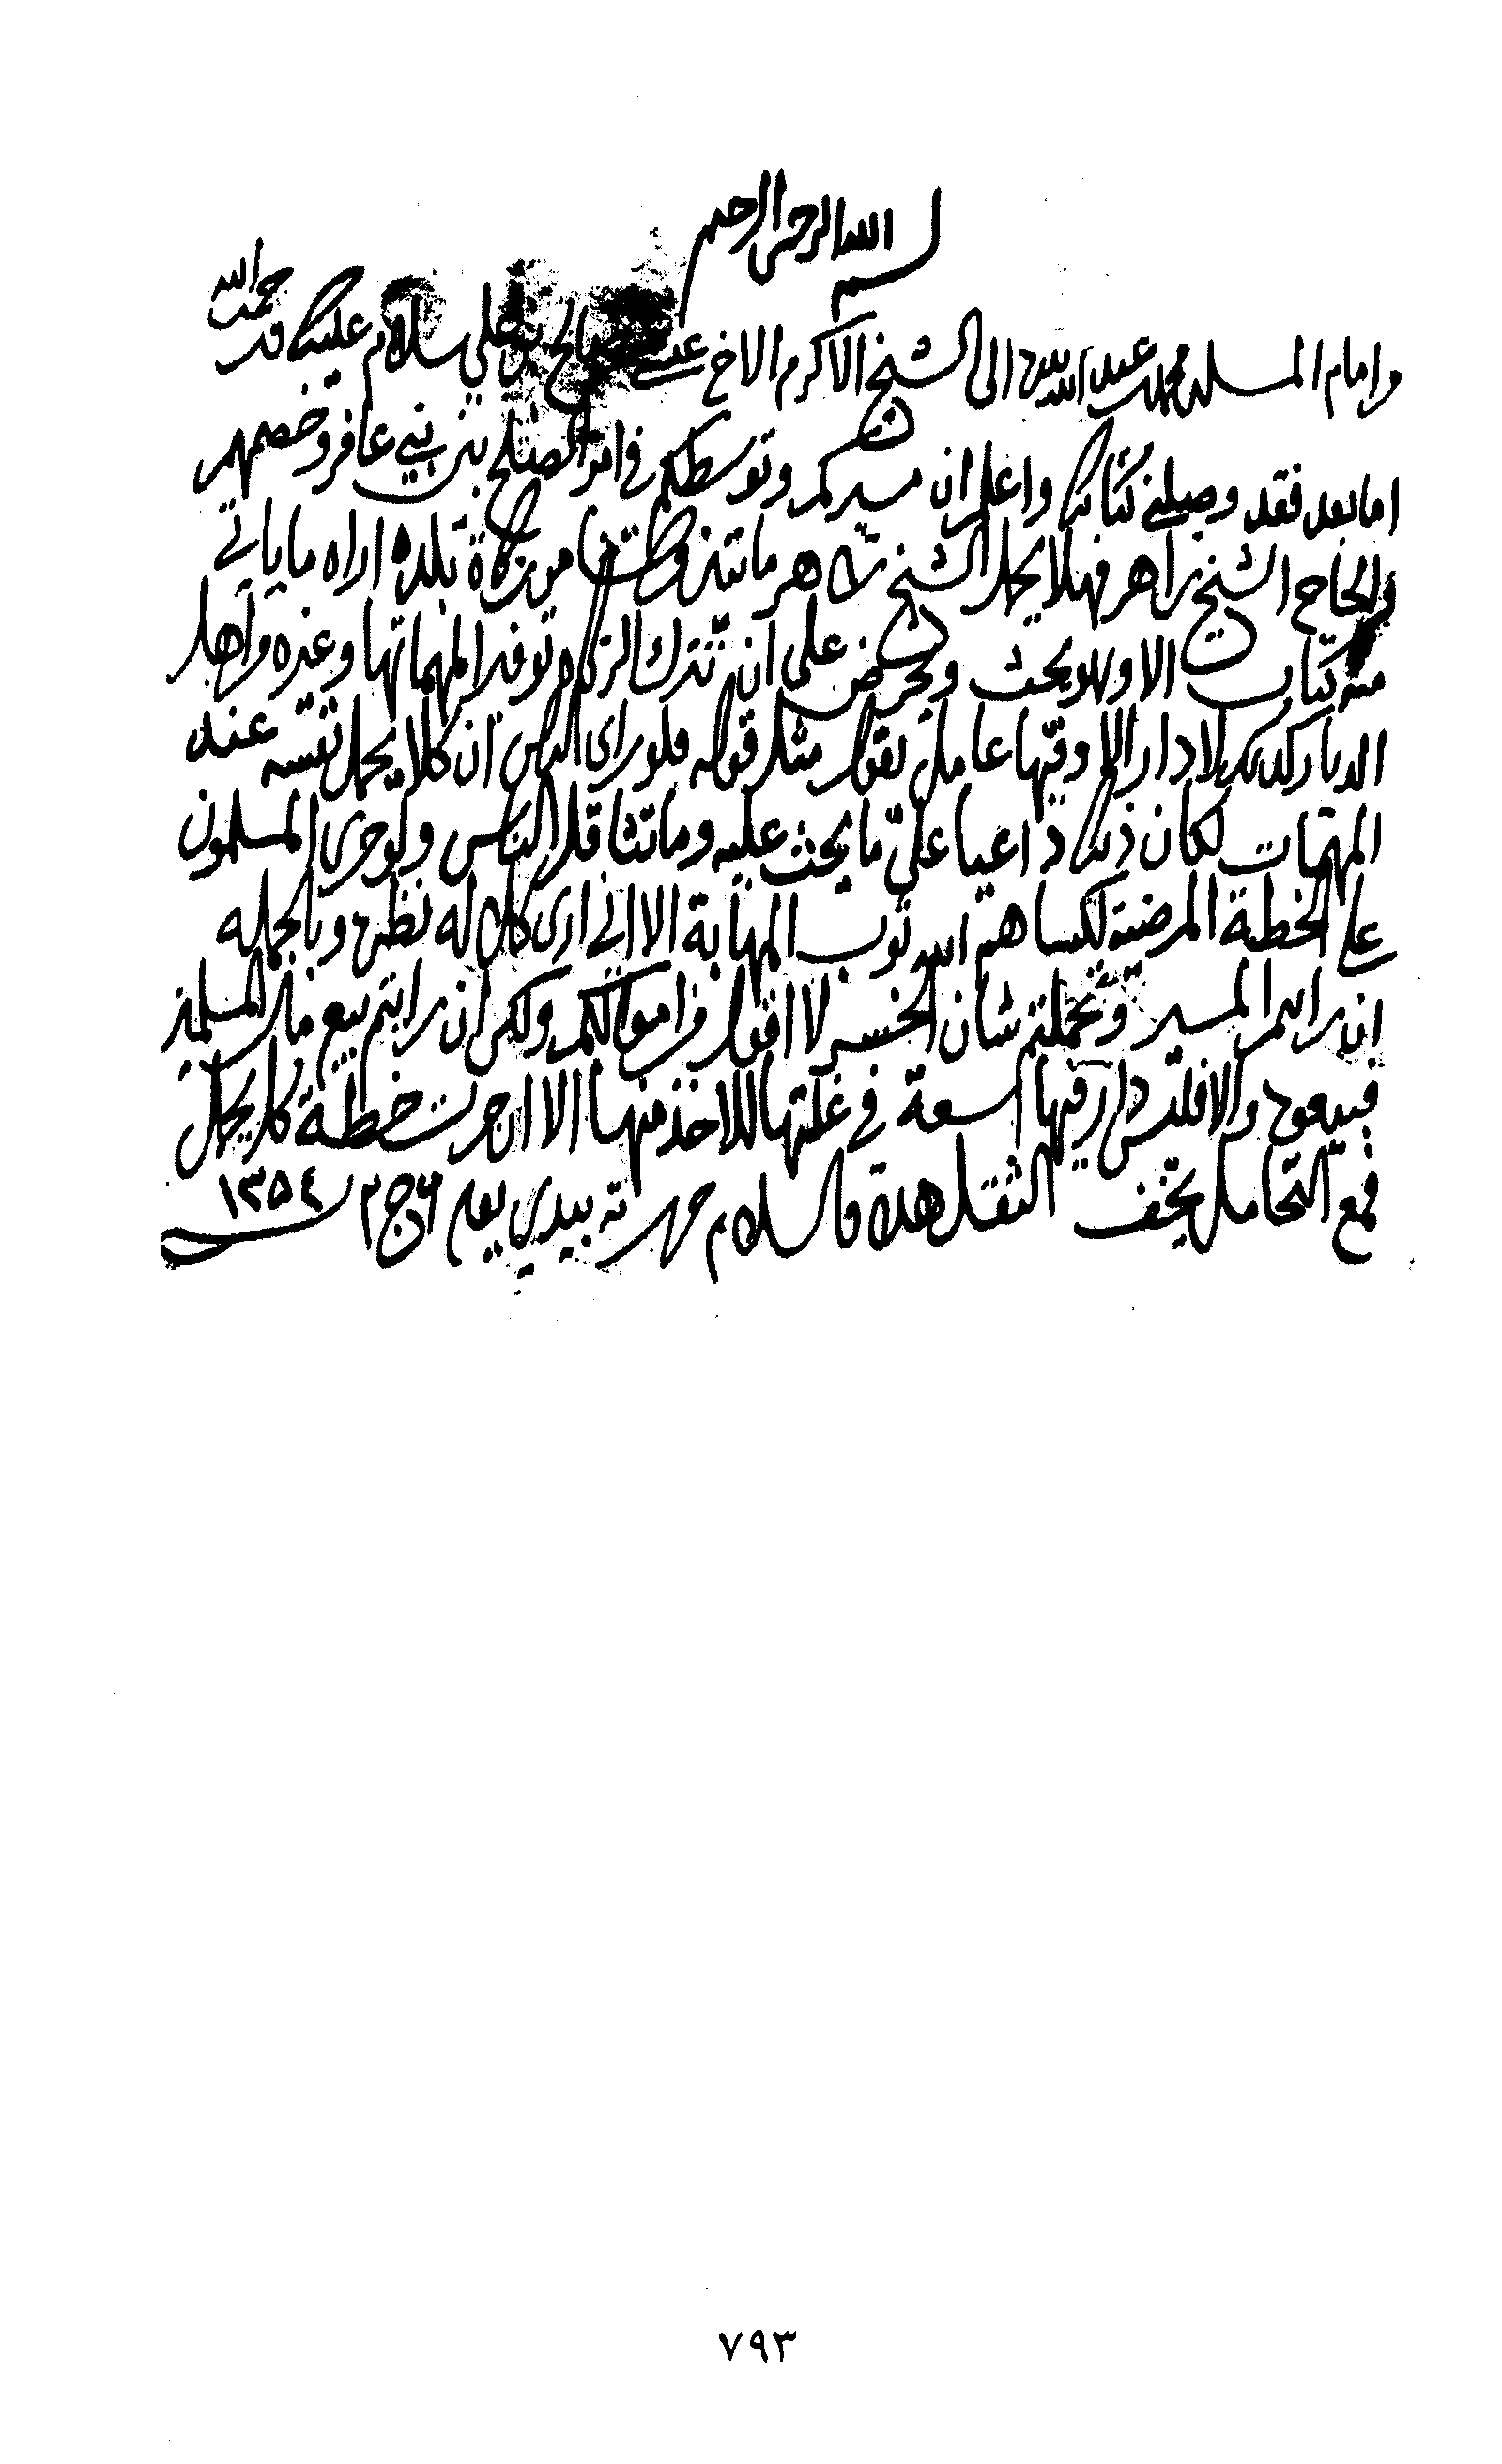 بسم الله الرحمن الرحيم
من امام المسلمين محمد بن عبدالله الى الشيخ الاكرم الاخ عيسى بن صالح بن علي سلام عليك ورحمة الله
اما بعد فقد وصلني كتابك واعلم ان مسيركم وتوسطكم في امر الصلح بين بني عافر وخصمهم
والحاج الشيخ زاهر فهلا يحل الشيخ زاهر ما من زكاة بلده اراه ما ياتي
منه كتاب الا وهو يحث ويحرض على ان تترك الزكاه توفيرا لمهماتها وغيره واهل
الديار كذلك لا دار الا وفيها عامل يقول مثل قوله فلو راى الناس ان كلا يحمل نفسه عند
المهمات لكان ذلك داعيا على ما يحث عليه وما تثاقل الناس ولو جرى المسلمون
على الخطة المرضية لكساهم الله ثوب المهابة الا اني ارى كلا له نظره وبالجمله
ان رايتم المسير وتحملتم شان الخسر لا اقول من اموالكم ولكن ان رايتم بيع مال المسلمين
فبيعوه والا فليس دار فيها سعة في غلتها للاخذ منها الا ان جرت خطة كل يحمل
فمع التحامل يخف الثقل هذا والسلام حررته بيدي يوم ٦ ج ٢ ١٣٥٤
٧٩٣